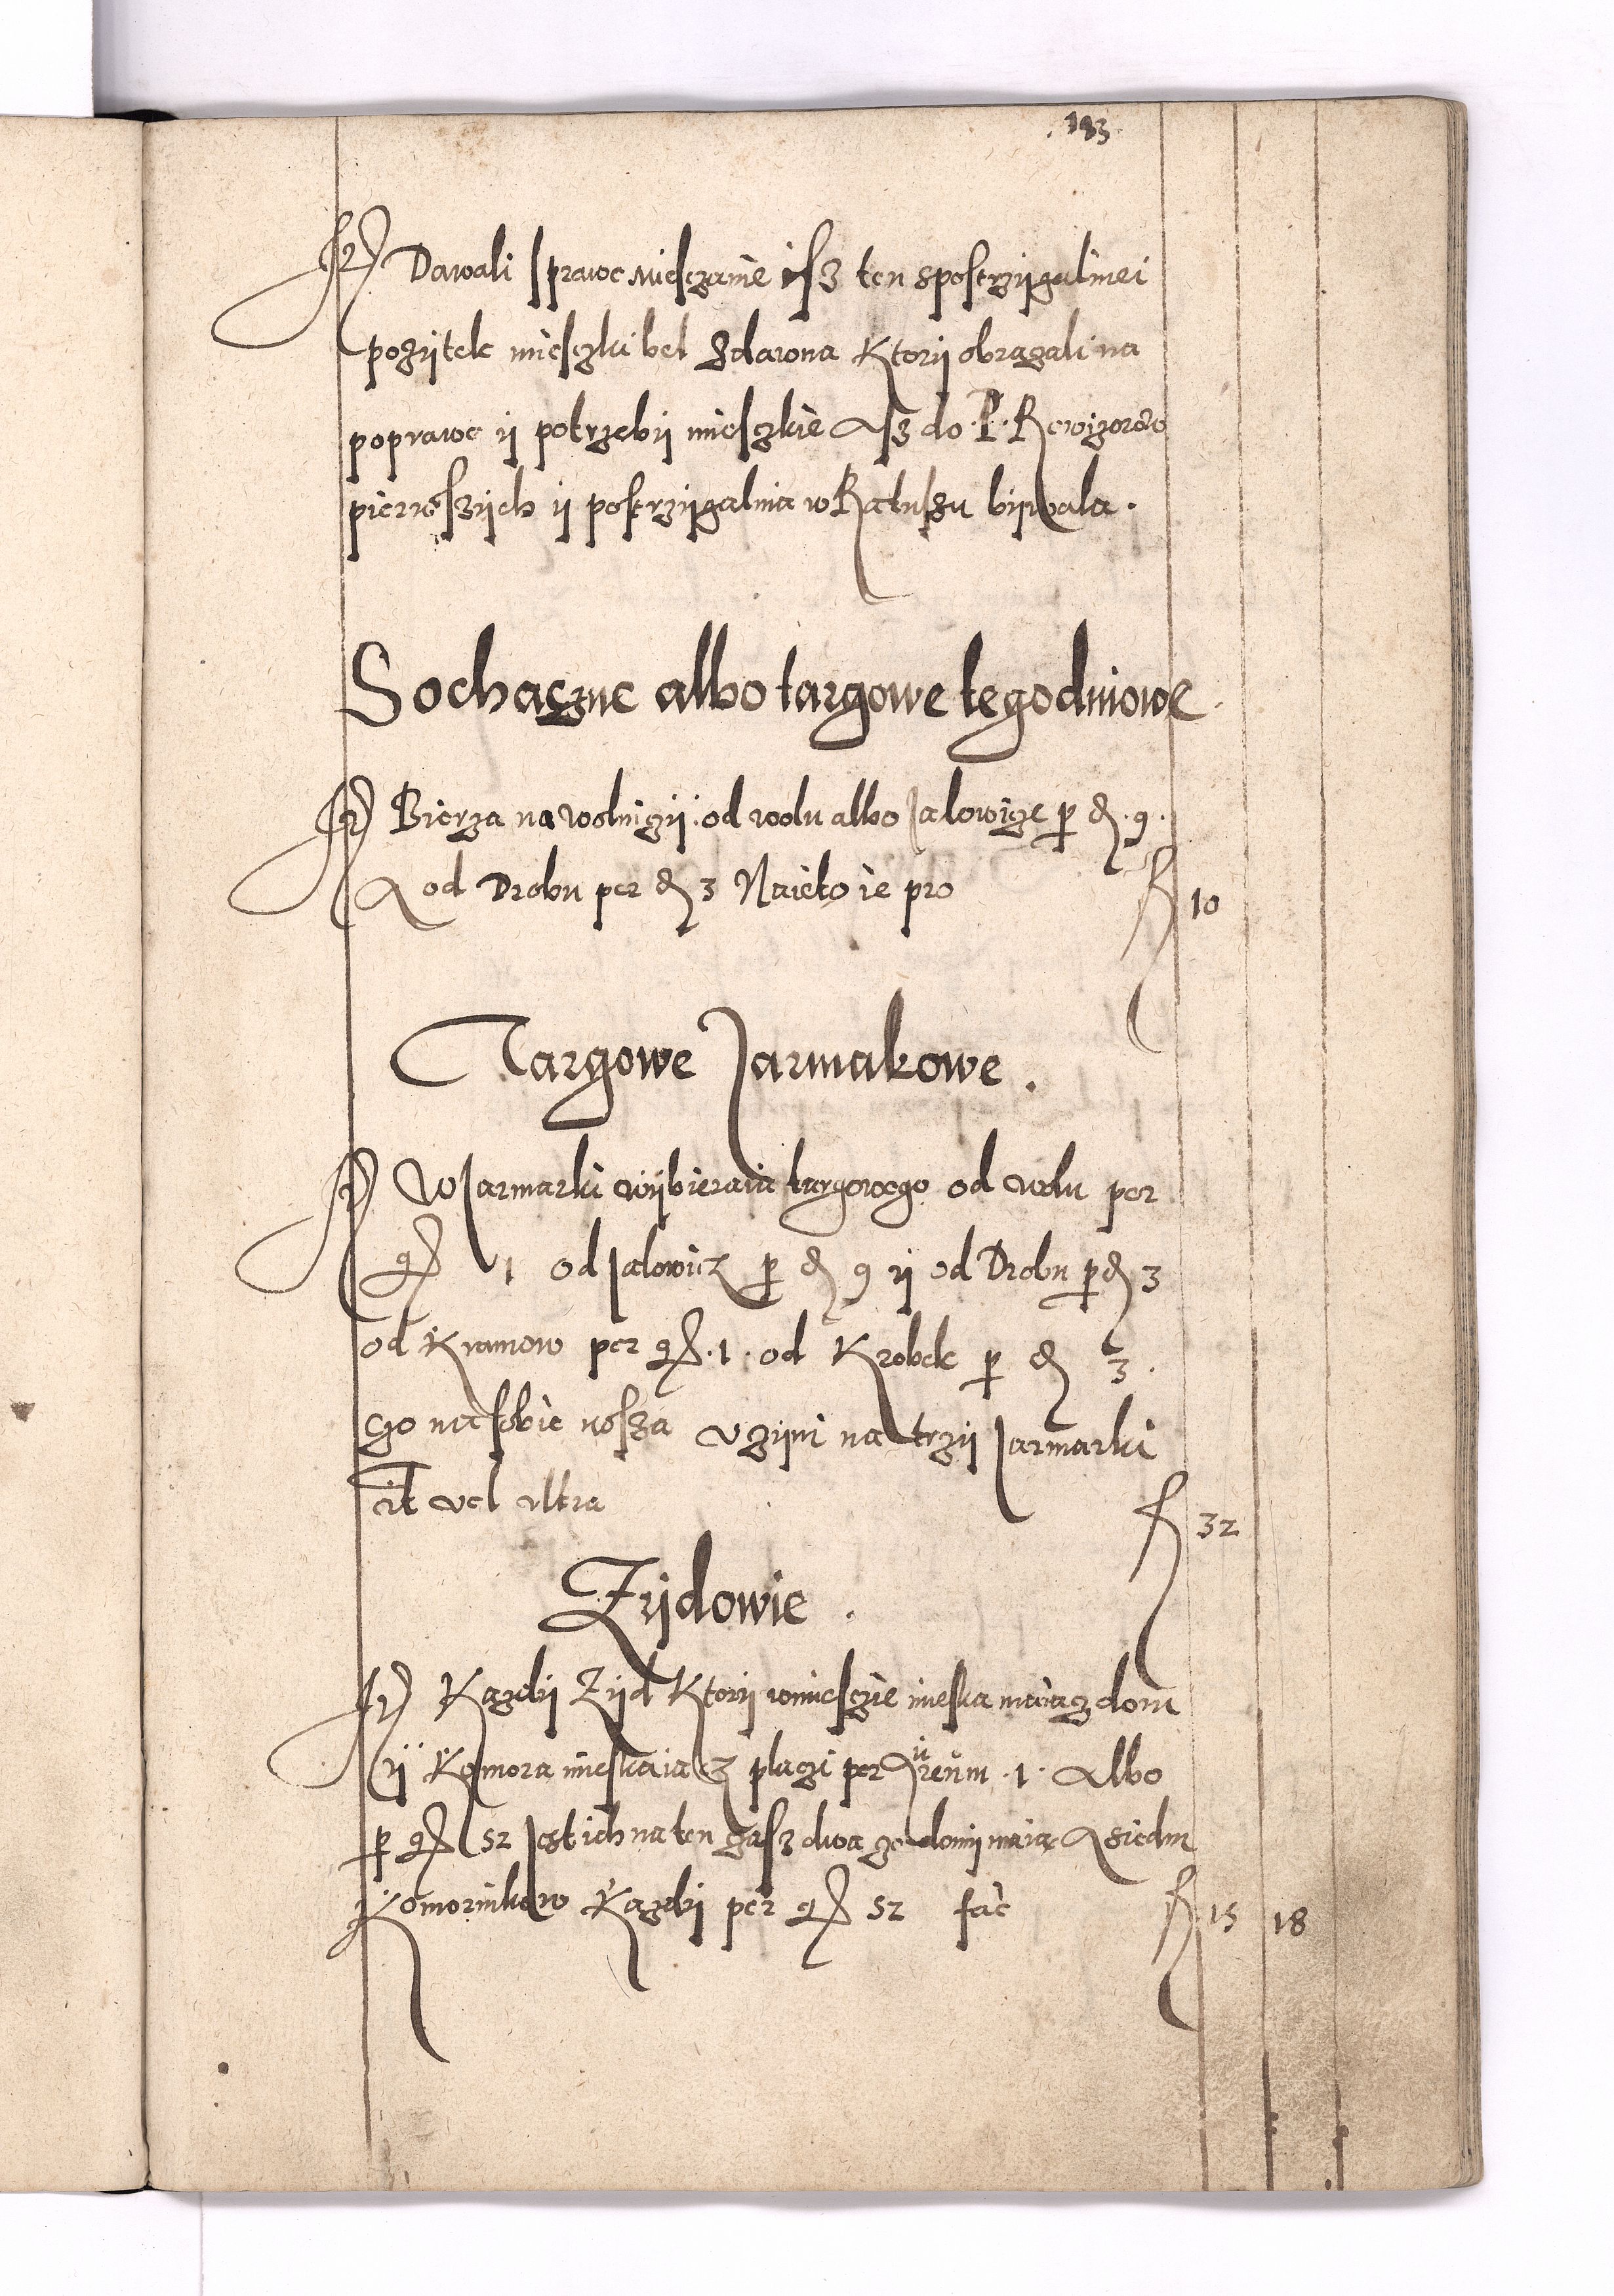 193
Dawali sprawe miesczanie isz ten spostrzygalniei
pozytek mieszki bel zdawna ktory obrazali na
poprawe y potrzeby mieszkie asz do P. Rewizorow
pierwszych y postrzygalnia w Ratuszu bywala.
Sochaczne albo targowe tegodniowe
Bierza na wolniczy od wolu albo Jalowicze per d. 9.
A od Drobu per d 3 Naieto ie pro
fl 10
Targowe Jarmakowe.
W Jarmarki wybieraia targowego od wolu per
gr 1 od Jalowicz per d 9 y od Drobu per d 3
od Kramow per gr. 1. od Krobek per d 3.
czo na sobie nosza uczyni na trzy Jarmarki
it vel ultra
fl 32
Zydowie.
Kazdy Zyd Ktory w miesczie mieska maiacz dom
y Komora mieskaiacz placzi per aureum 1. Albo
per gr 52 Jest ich na ten czasz dwa czo domy maia A siedm
Komornikow Kazdy per gr 52 fac
fl 15 18